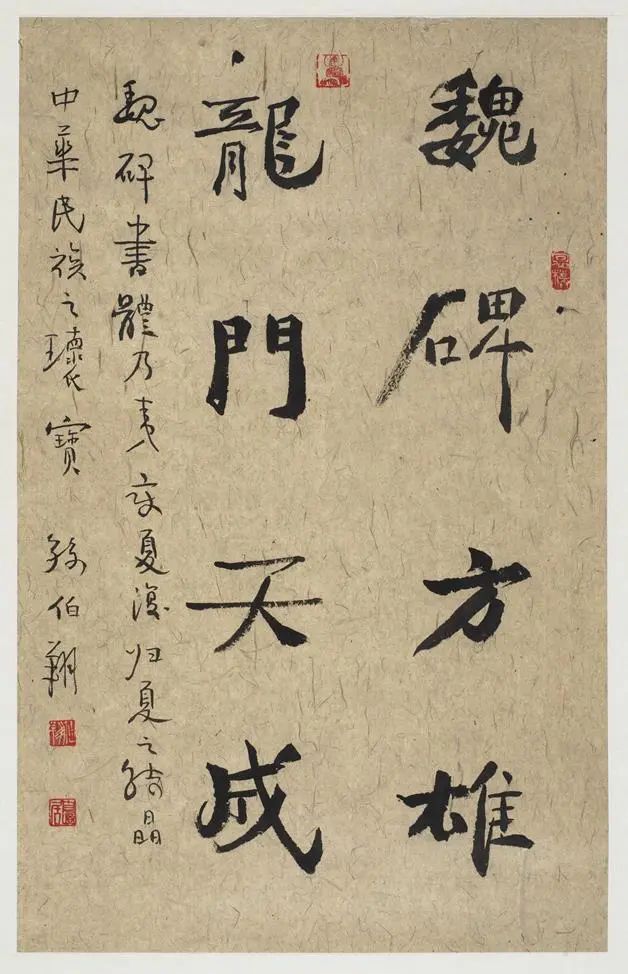 魏碑方雄
龍門天成
魏碑書體乃夷變夏復归夏之結晶
中華民族之瓌寶 孫伯翔